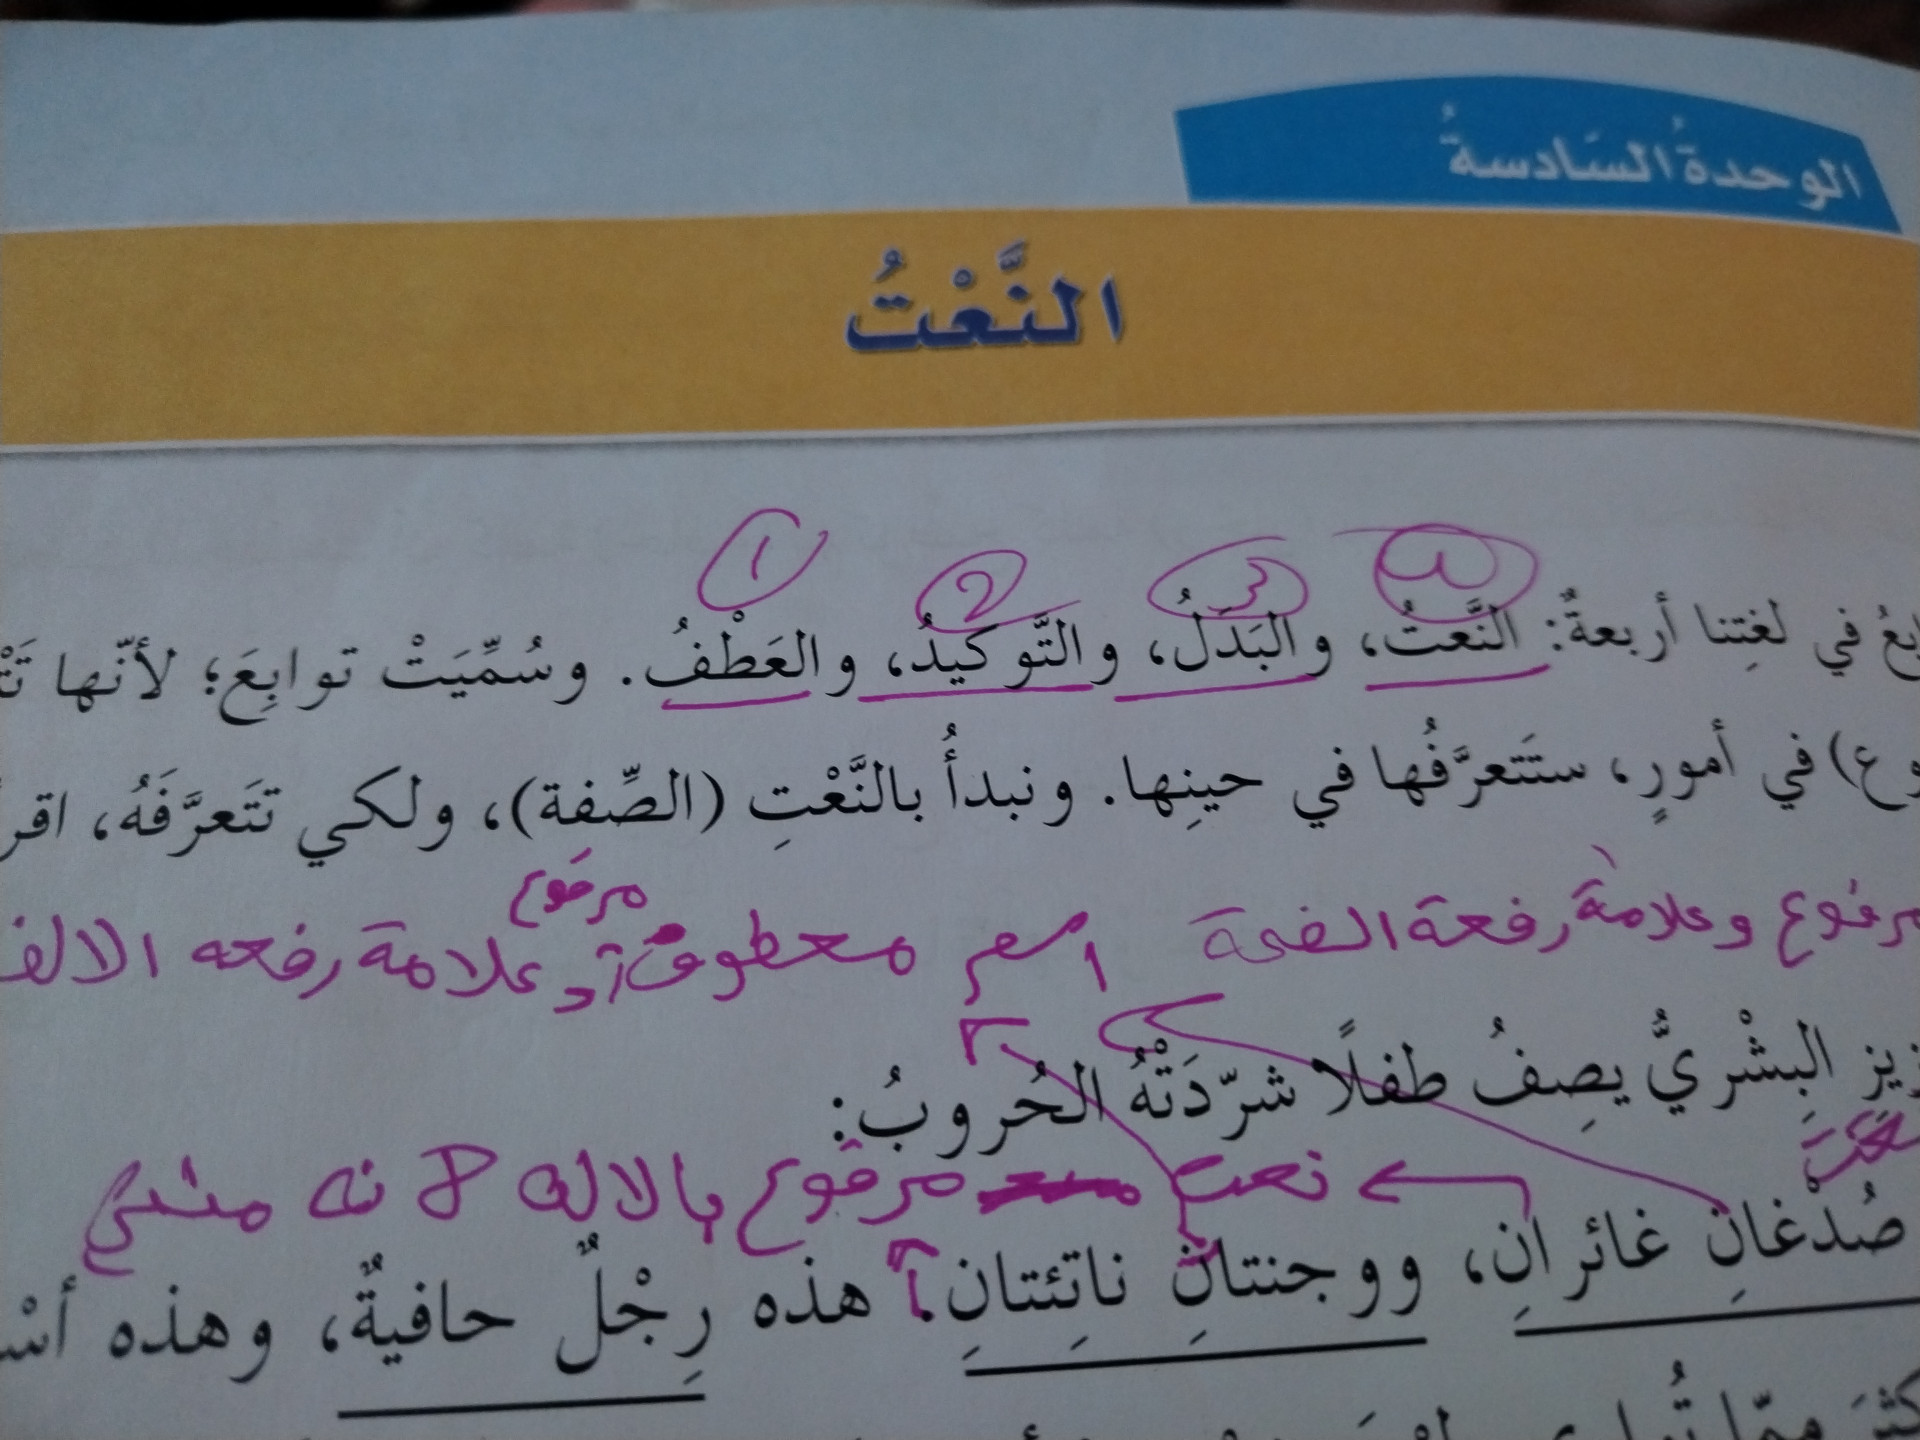 الوحدةُ السَادسةُ
النَّعْتُ
1 2 3
في لغتِنا أربعةٌ: النَّعتُ، والبَدَلُ، والتَّوكيدُ، والعَطْفُ. وسُمِّيَتْ توابِعَ؛ لأنّها
في أمورٍ، ستَتَعرَّفُها في حينِها. ونبدأُ بالنَّعْتِ (الصِّفة)، ولكي تتَعرَّفَهُ،
مرفوع
مرفوع وعلامة رفعة الضمة اسم معطوف وعلامة رفعه الالف
البِشْريُّ يصِفُ طفلًا شرّدَتْهُ الحُروبُ:
نعت مرفوع بالالف لانه مثنى
صُدْغانِ غائرانِ، ووجنتانِ ناتئتانِ. هذه رِجْلٌ حافيةٌ، وهذه